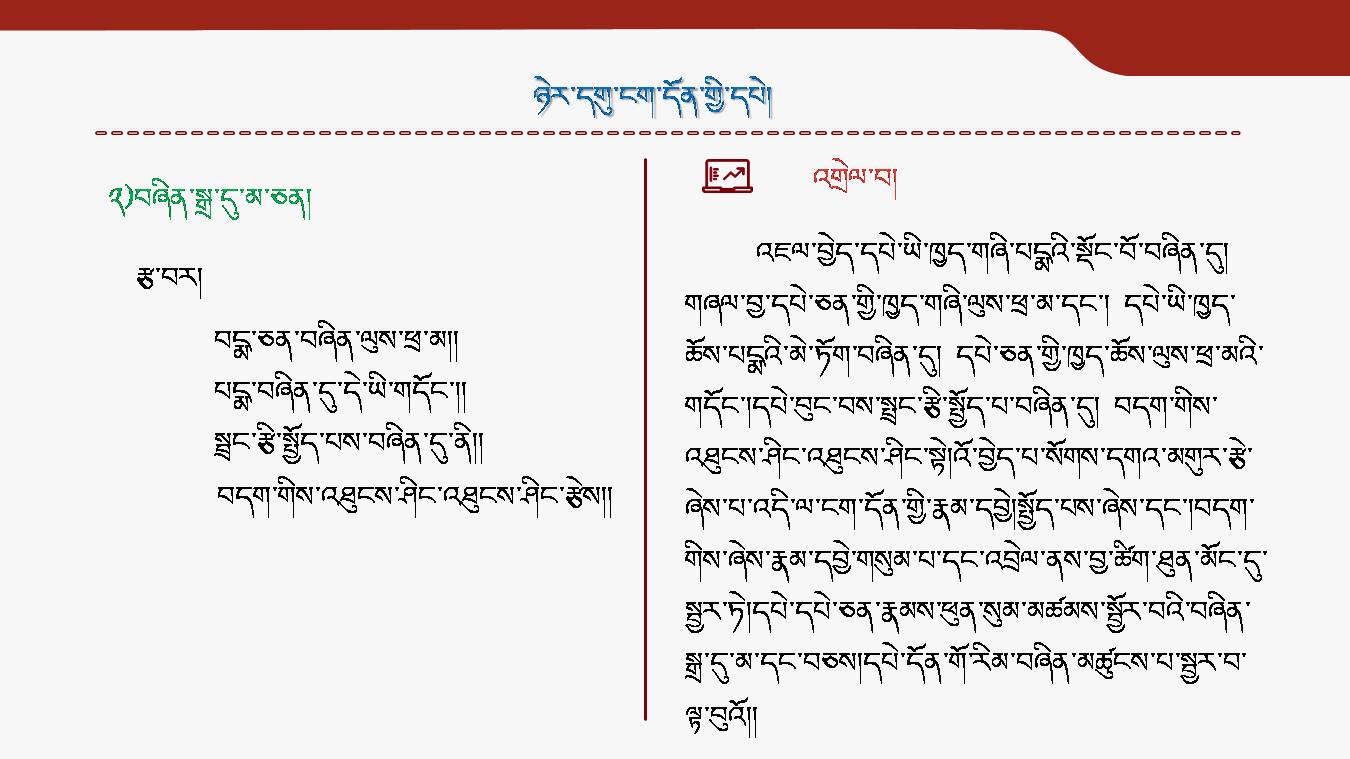 ཉེར་དགུ་ངག་དོན་གྱི་དཔེ།
༢)བཞིན་སྒྲ་དུ་མ་ཅན།
རྩ་བར།
པདྨ་ཅན་བཞིན་ལུས་ཕྲ་མ།།
པདྨ་བཞིན་དུ་དེ་ཡི་གདོང་།།
སྦྲང་རྩི་སྤྱོད་པས་བཞིན་དུ་ནི།།
བདག་གིས་འཐུངས་ཤིང་འཐུངས་ཤིང་རྩེས།།
འགྲེལ་བ།
འཇལ་བྱེད་དཔེ་ཡི་ཁྱད་གཞི་པདྨའི་སྡོང་པོ་བཞིན་དུ།
གཞལ་བྱ་དཔེ་ཅན་གྱི་ཁྱད་གཞི་ལུས་ཕྲ་མ་དང་། དཔེ་ཡི་ཁྱད་
ཆོས་པདྨའི་མེ་ཏོག་བཞིན་དུ། དཔེ་ཅན་གྱི་ཁྱད་ཆོས་ལུས་ཕྲ་མའི་
གདོང་།དཔེ་བུང་བས་སྦྲང་རྩི་སྤྱོད་པ་བཞིན་དུ། བདག་གིས་
འཐུངས་ཤིང་འཐུངས་ཤིང་སྟེ།འོ་བྱེད་པ་སོགས་དགའ་མགུར་རྩེ་
ཞེས་པ་འདི་ལ་ངག་དོན་གྱི་རྣམ་དབྱེ།སྤྱོད་པས་ཞེས་དང་།བདག་
གིས་ཞེས་རྣམ་དབྱེ་གསུམ་པ་དང་འབྲེལ་ནས་བྱ་ཚིག་ཐུན་མོང་དུ་
སྦྱར་ཏེ།དཔེ་དཔེ་ཅན་རྣམས་ཕུན་སུམ་མཚམས་སྦྱོར་བའི་བཞིན་
སྒྲ་དུ་མ་དང་བཅས།དཔེ་དོན་གོ་རིམ་བཞིན་མཚུངས་པ་སྦྱར་བ་
ལྟ་བུའོ།།